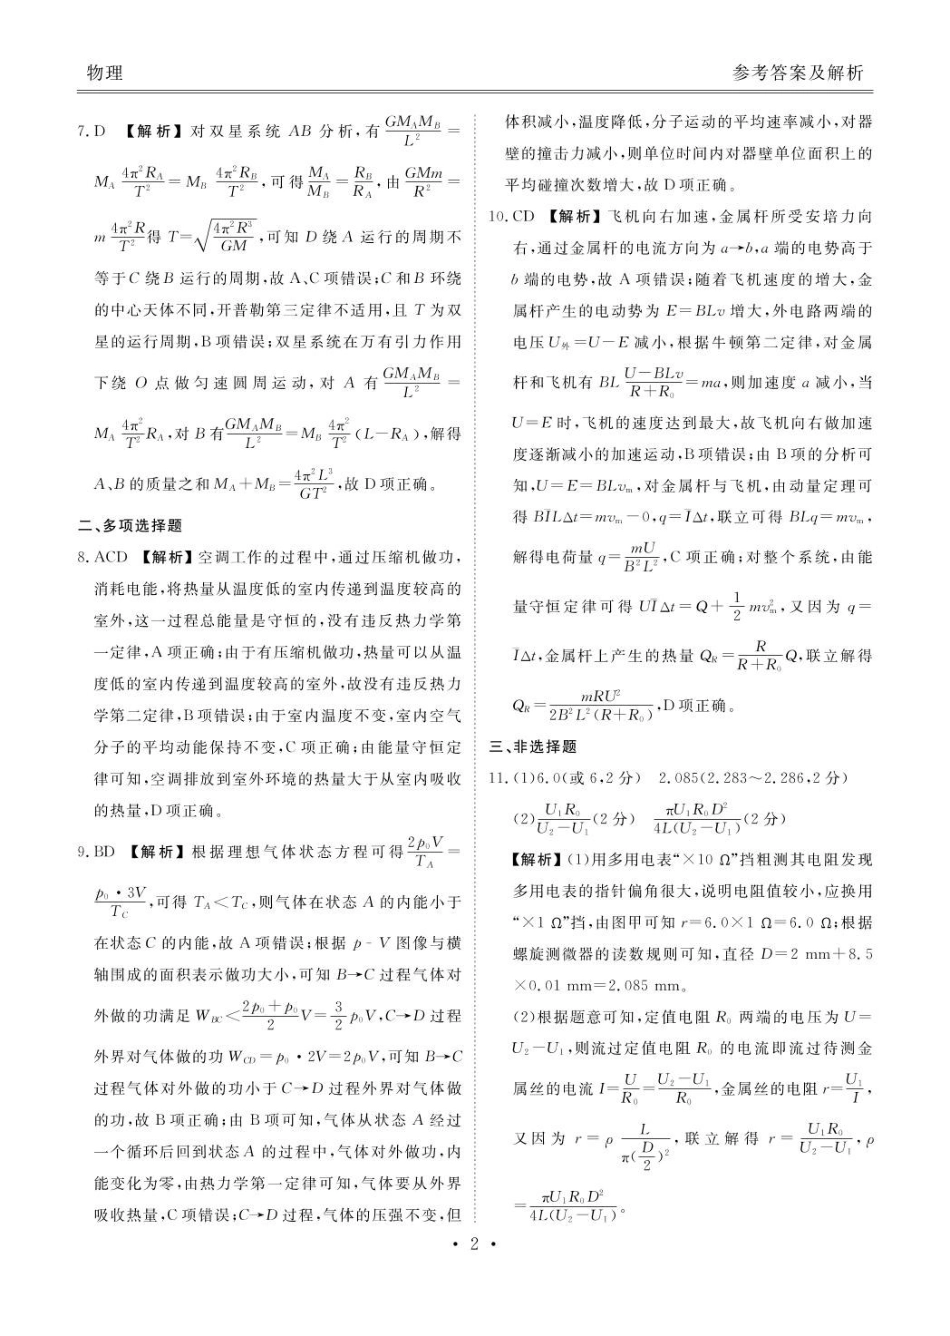 物理
参考答案及解析
7. D 【解析】对双星系统 AB 分析,有 $\frac{GM_AM_B}{L^2}$ =
$M_A\frac{4\pi^2R_A}{T^2}=M_B\frac{4\pi^2R_B}{T^2}$,可得 $\frac{M_A}{M_B}=\frac{R_B}{R_A}$,由 $\frac{GMm}{R^2}$ =
$m\frac{4\pi^2R}{T^2}$得 $T=\sqrt{\frac{4\pi^2R^3}{GM}}$,可知 D 绕 A 运行的周期不
等于 C 绕 B 运行的周期,故 A、C 项错误;C 和 B 环绕
的中心天体不同,开普勒第三定律不适用,且 T 为双
星的运行周期,B 项错误;双星系统在万有引力作用
下绕 O 点做匀速圆周运动,对 A 有 $\frac{GM_AM_B}{L^2}$ =
$M_A\frac{4\pi^2}{T^2}R_A$,对 B 有$\frac{GM_AM_B}{L^2}=M_B\frac{4\pi^2}{T^2}(L-R_A)$,解得
A、B 的质量之和 $M_A+M_B=\frac{4\pi^2L^3}{GT^2}$,故 D 项正确。
二、多项选择题
8. ACD 【解析】空调工作的过程中,通过压缩机做功,
消耗电能,将热量从温度低的室内传递到温度较高的
室外,这一过程总能量是守恒的,没有违反热力学第
一定律,A 项正确;由于有压缩机做功,热量可以从温
度低的室内传递到温度较高的室外,故没有违反热力
学第二定律,B 项错误;由于室内温度不变,室内空气
分子的平均动能保持不变,C 项正确;由能量守恒定
律可知,空调排放到室外环境的热量大于从室内吸收
的热量,D 项正确。
9. BD 【解析】根据理想气体状态方程可得$\frac{2p_0V}{T_A}$ =
$\frac{p_0·3V}{T_C}$,可得 $T_A<T_C$,则气体在状态 A 的内能小于
在状态 C 的内能,故 A 项错误;根据 p-V 图像与横
轴围成的面积表示做功大小,可知 B→C 过程气体对
外做的功满足 $W_{BC}<\frac{2p_0+p_0}{2}V=\frac{3}{2}p_0V$,C→D 过程
外界对气体做的功 $W_{CD}=p_0·2V=2p_0V$,可知 B→C
过程气体对外做的功小于 C→D 过程外界对气体做
的功,故 B 项正确;由 B 项可知,气体从状态 A 经过
一个循环后回到状态 A 的过程中,气体对外做功,内
能变化为零,由热力学第一定律可知,气体要从外界
吸收热量,C 项错误;C→D 过程,气体的压强不变,但
体积减小,温度降低,分子运动的平均速率减小,对器
壁的撞击力减小,则单位时间内对器壁单位面积上的
平均碰撞次数增大,故 D 项正确。
10. CD 【解析】飞机向右加速,金属杆所受安培力向
右,通过金属杆的电流方向为 a→b,a 端的电势高于
b 端的电势,故 A 项错误;随着飞机速度的增大,金
属杆产生的电动势为 E=BLv 增大,外电路两端的
电压 $U_外=U-E$ 减小,根据牛顿第二定律,对金属
杆和飞机有 $BL\frac{U-BLv}{R+R_0}=ma$,则加速度 a 减小,当
U=E 时,飞机的速度达到最大,故飞机向右做加速
度逐渐减小的加速运动,B 项错误;由 B 项的分析可
知,$U=E=BLv_m$,对金属杆与飞机,由动量定理可
得 $B\bar{I}L\Delta t=mv_m-0$,$q=\bar{I}\Delta t$,联立可得 $BLq=mv_m$,
解得电荷量 $q=\frac{mU}{B^2L^2}$,C 项正确;对整个系统,由能
量守恒定律可得 $U\bar{I}\Delta t=Q+\frac{1}{2}mv_m^2$,又因为 q=
$\bar{I}\Delta t$,金属杆上产生的热量 $Q_R=\frac{R}{R+R_0}Q$,联立解得
$Q_R=\frac{mRU^2}{2B^2L^2(R+R_0)}$,D 项正确。
三、非选择题
11. (1)6.0(或 6,2 分) 2.085(2.283~2.286,2 分)
(2)$\frac{U_1R_0}{U_2-U_1}$(2 分) $\frac{\pi U_1R_0D^2}{4L(U_2-U_1)}$(2 分)
【解析】(1)用多用电表“×10 Ω”挡粗测其电阻发现
多用电表的指针偏角很大,说明电阻值较小,应换用
“×1 Ω”挡,由图甲可知 r=6.0×1 Ω=6.0 Ω;根据
螺旋测微器的读数规则可知,直径 D=2 mm+8.5
×0.01 mm=2.085 mm。
(2)根据题意可知,定值电阻 $R_0$ 两端的电压为 U=
$U_2-U_1$,则流过定值电阻 $R_0$ 的电流即流过待测金
属丝的电流 $I=\frac{U}{R_0}=\frac{U_2-U_1}{R_0}$,金属丝的电阻 $r=\frac{U_1}{I}$,
又因为 $r=\rho\frac{L}{\pi(\frac{D}{2})^2}$,联立解得 $r=\frac{U_1R_0}{U_2-U_1}$,ρ
$=\frac{\pi U_1R_0D^2}{4L(U_2-U_1)}$。
· 2 ·